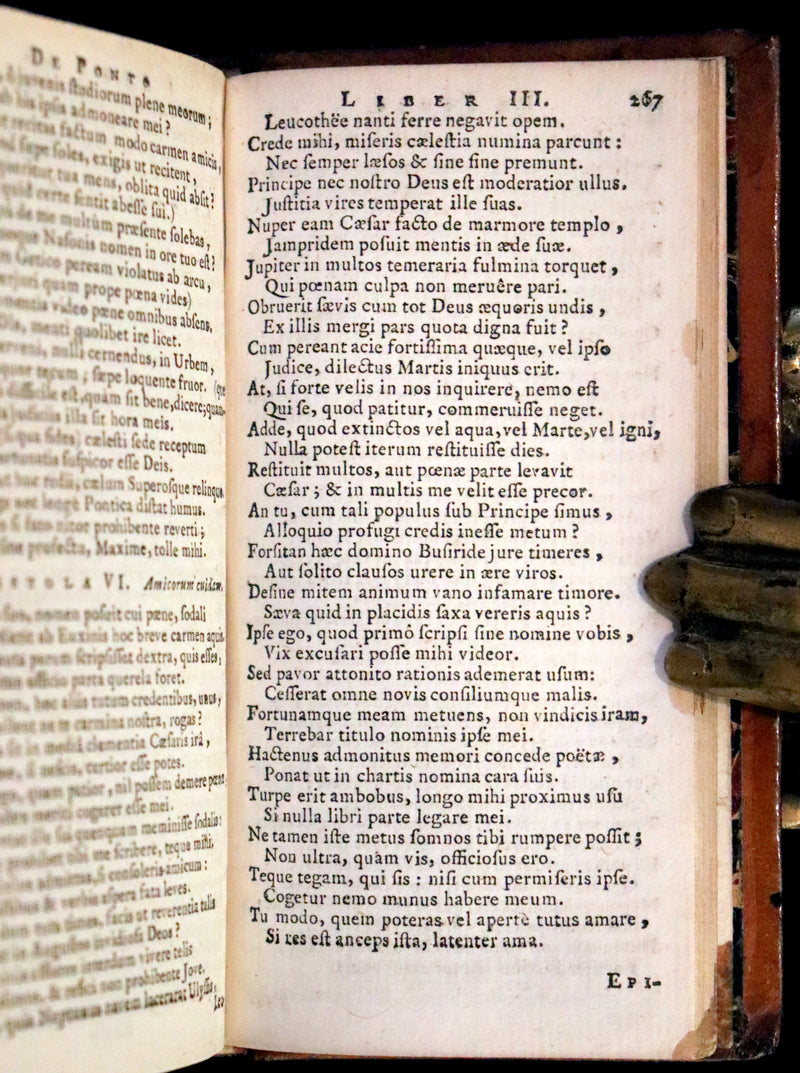 De Ponto
studiorum plene meorum;
admoneare mei?
factum modo carmen amicis,
soles, exigis ut recitent,
tua mens, oblita quid absit?
certe sentit abesse sui.)
me multum præsente solebas,
Nasonis nomen in ore tuo est?
Getico peream violatus ab arcu,
quam prope pœna vides)
video pæne omnibus absens,
menti quolibet ire licet.
nulli cernendus, in Urbem,
sæpe loquente fruor.
est, quam sit bene, dicere; quam
illa sit hora meis.
cælesti sede receptum
esse Deis.
cælum Superosque relinquo,
Pontica distat humus.
prohibente reverti;
Maxime, tolle mihi.
VI. Amicorum cuidam.
posuit cui pæne, sodali
hoc breve carmen aquis.
dextra, quis esses,
parta querela foret.
tutum credentibus, unus,
carmina nostra, rogas?
clementia Cæsaris irâ,
certior esse potes.
nil possem demere pœnæ
cogerer esse mei.
meminisse sodalis:
scribere, teque mihi,
amicum:
aspera fata leves.
reverentia talis
Deos?
vivere telis
prohibente Jove.
navem lacerarat Ulyssis,
Leu
Liber III. 267
Leucothëe nanti ferre negavit opem.
Crede mihi, miſeris cæleſtia numina parcunt:
Nec ſemper læſos & ſine fine premunt.
Principe nec noſtro Deus eſt moderatior ullus.
Juſtitia vires temperat ille ſuas.
Nuper eam Cæſar facto de marmore templo,
Jampridem poſuit mentis in æde ſuæ.
Jupiter in multos temeraria fulmina torquet,
Qui pœnam culpa non meruêre pari.
Obruerit ſævis cum tot Deus æquoris undis,
Ex illis mergi pars quota digna fuit?
Cum pereant acie fortiſſima quæque, vel ipſo
Judice, dilectus Martis iniquus erit.
At, ſi forte velis in nos inquirere, nemo eſt
Qui ſe, quod patitur, commeruiſſe neget.
Adde, quod extinctos vel aqua, vel Marte, vel igni,
Nulla poteſt iterum reſtituiſſe dies.
Reſtituit multos, aut pœnæ parte levavit
Cæſar; & in multis me velit eſſe precor.
An tu, cum tali populus ſub Principe ſimus,
Alloquio profugi credis ineſſe metum?
Forſitan hæc domino Buſiride jure timeres,
Aut ſolito clauſos urere in ære viros.
Deſine mitem animum vano infamare timore.
Sæva quid in placidis ſaxa vereris aquis?
Ipſe ego, quod primô ſcripſi ſine nomine vobis,
Vix excuſari poſſe mihi videor.
Sed pavor attonito rationis ademerat uſum:
Ceſſerat omne novis conſiliumque malis.
Fortunamque meam metuens, non vindicis iram,
Terrebar titulo nominis ipſe mei.
Hactenus admonitus memori concede poëtæ,
Ponat ut in chartis nomina cara ſuis.
Turpe erit ambobus, longo mihi proximus uſu
Si nulla libri parte legare mei.
Ne tamen iſte metus ſomnos tibi rumpere poſſit;
Non ultra, quàm vis, officioſus ero.
Teque tegam, qui ſis: niſi cum permiſeris ipſe.
Cogetur nemo munus habere meum.
Tu modo, quem poteras vel apertè tutus amare,
Si res eſt anceps iſta, latenter ama.
Epi-